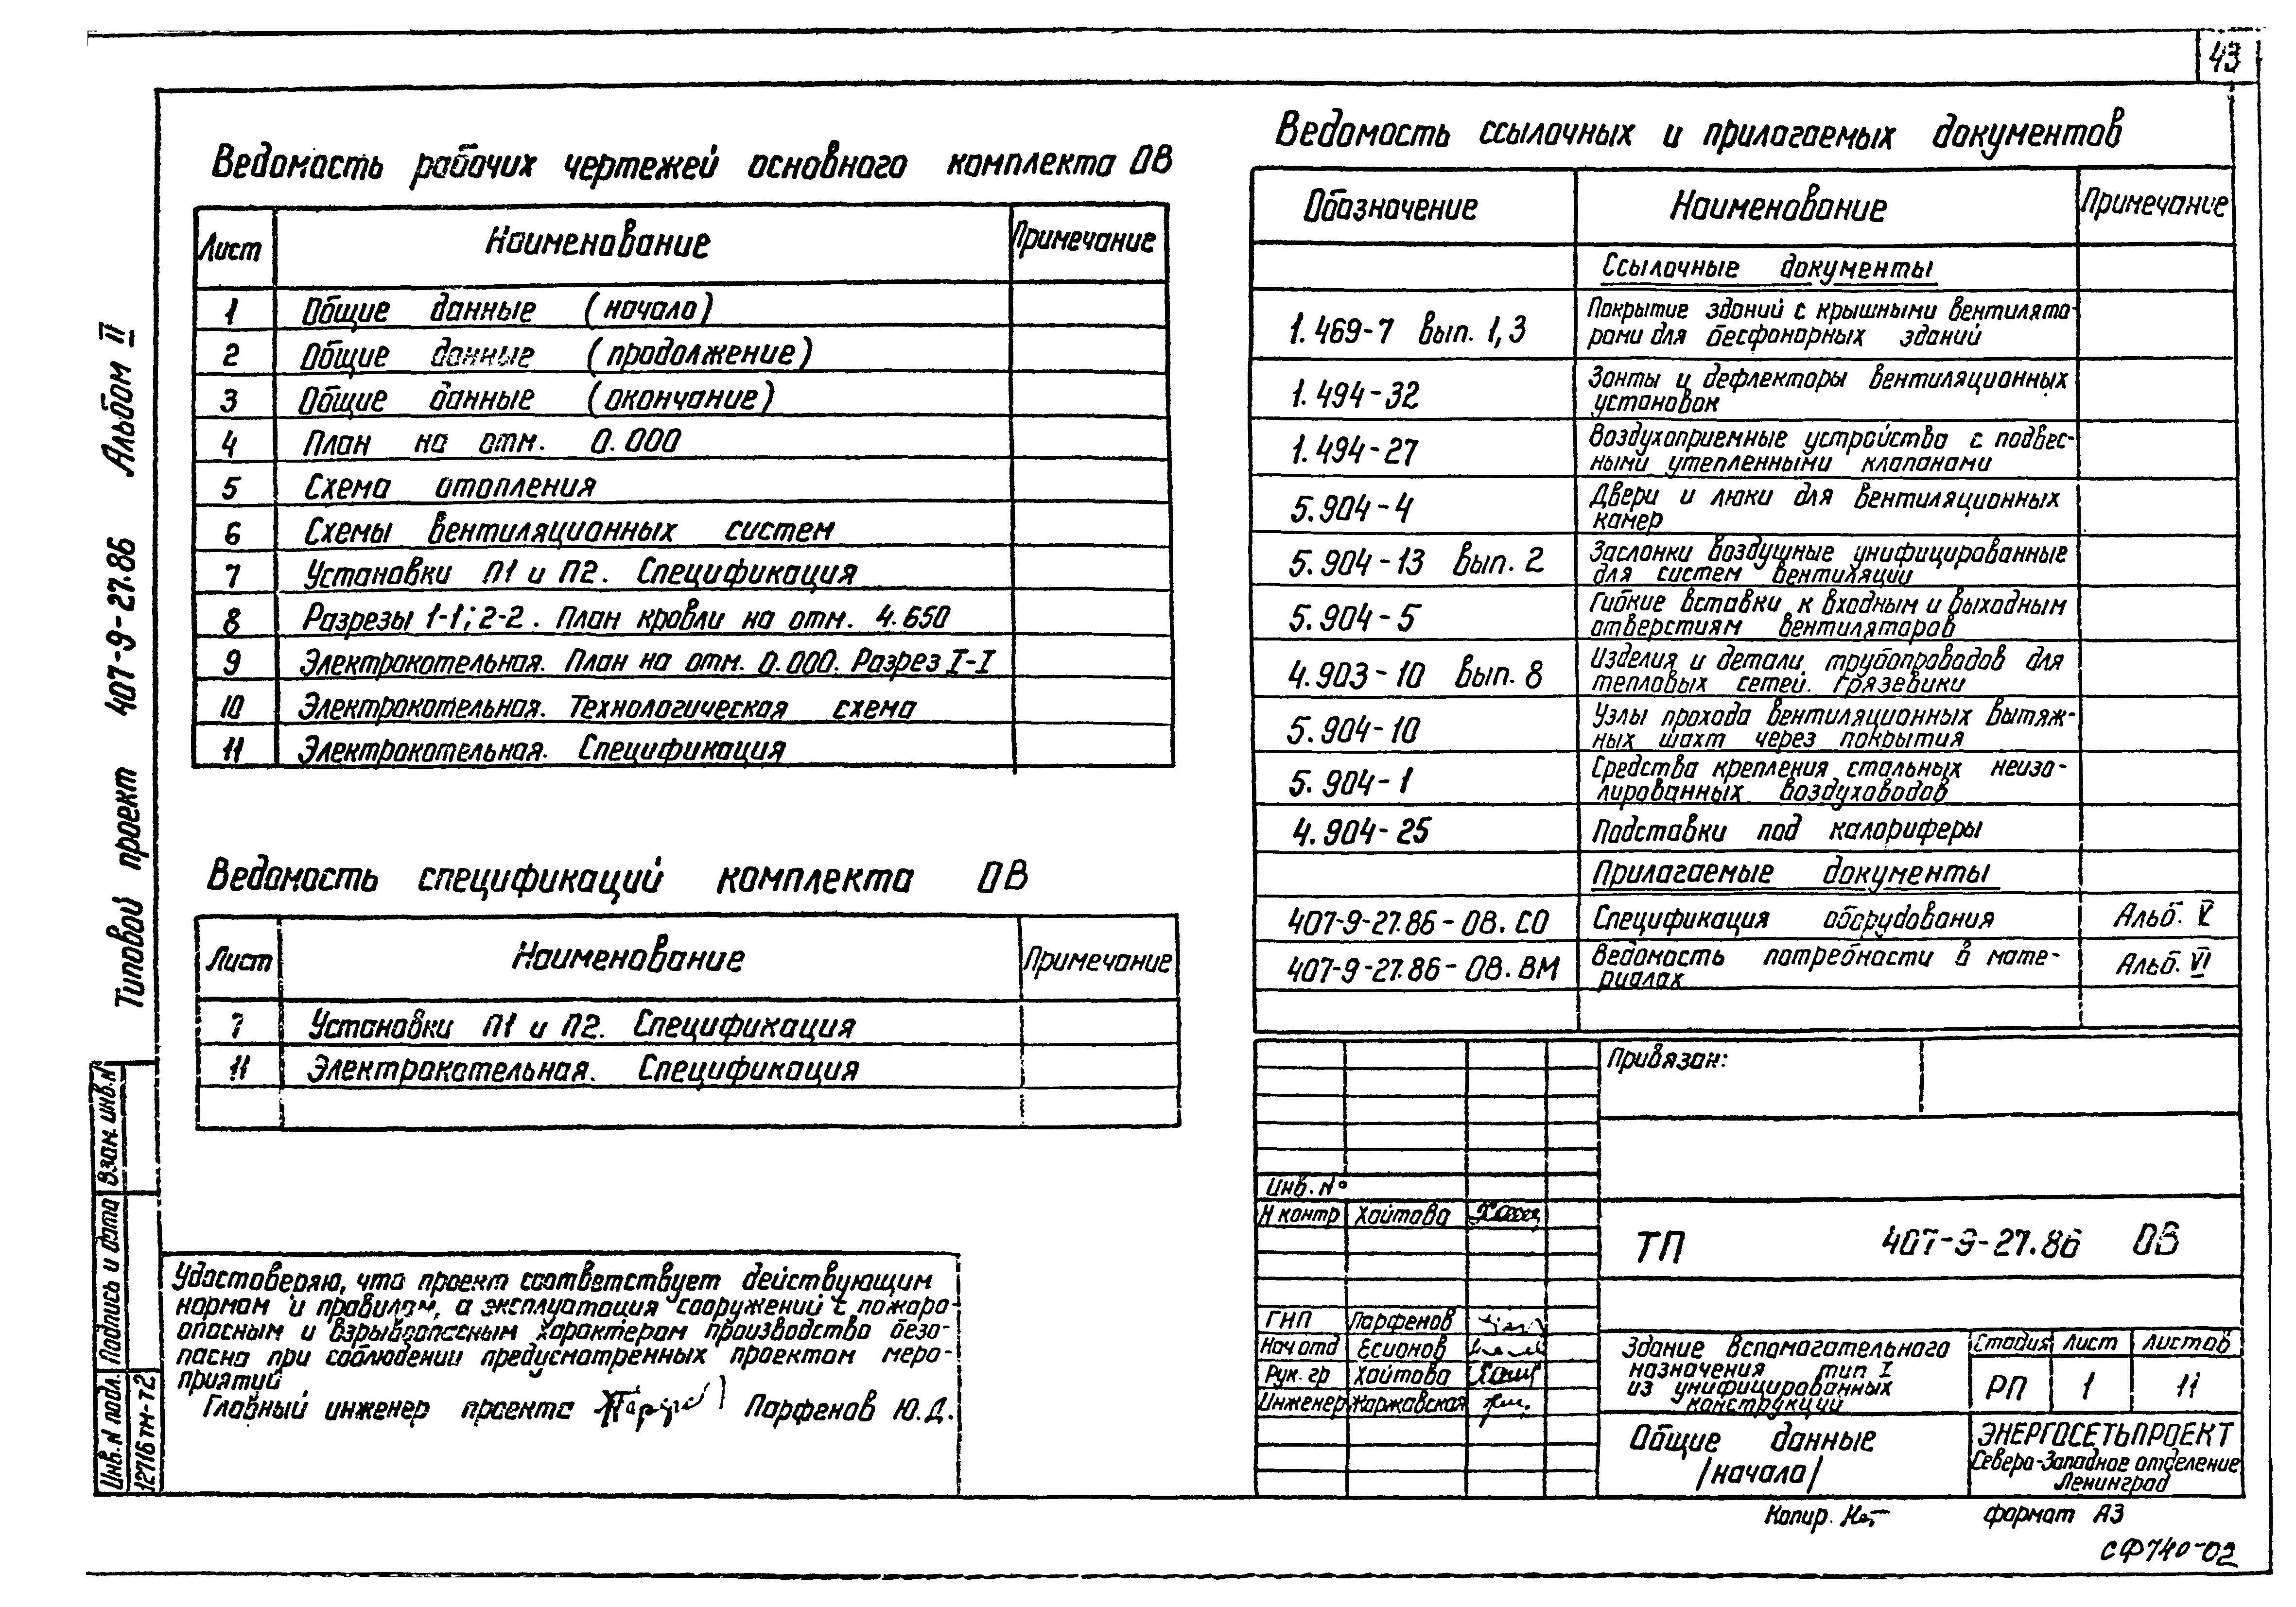 43
Типовой проект 407-9-27.86 Альбом II
Ведомость рабочих чертежей основного комплекта ОВ
Лист Наименование Примечание
1 Общие данные (начало)
2 Общие данные (продолжение)
3 Общие данные (окончание)
4 План на отм. 0.000
5 Схема отопления
6 Схемы вентиляционных систем
7 Установки П1 и П2. Спецификация
8 Разрезы 1-1; 2-2. План кровли на отм. 4.650
9 Электрокотельная. План на отм. 0.000. Разрез I-I
10 Электрокотельная. Технологическая схема
11 Электрокотельная. Спецификация
Ведомость спецификаций комплекта ОВ
Лист Наименование Примечание
7 Установки П1 и П2. Спецификация
11 Электрокотельная. Спецификация
Удостоверяю, что проект соответствует действующим
нормам и правилам, а эксплуатация сооружений с пожаро-
опасным и взрывоопасным характером производства безо-
пасна при соблюдении предусмотренных проектом меро-
приятий
Главный инженер проекта Парфенов Ю.Д.
Взам. инв. N
Подпись и дата
Инв. N подл.
12716тм-т2
Ведомость ссылочных и прилагаемых документов
Обозначение Наименование Примечание
Ссылочные документы
1.469-7 вып. 1,3 Покрытие зданий с крышными вентилято-
рами для бесфонарных зданий
1.494-32 Зонты и дефлекторы вентиляционных
установок
1.494-27 Воздухоприемные устройства с подвес-
ными утепленными клапанами
5.904-4 Двери и люки для вентиляционных
камер
5.904-13 вып. 2 Заслонки воздушные унифицированные
для систем вентиляции
5.904-5 Гибкие вставки к входным и выходным
отверстиям вентиляторов
4.903-10 вып. 8 Изделия и детали трубопроводов для
тепловых сетей. Грязевики
5.904-10 Узлы прохода вентиляционных вытяж-
ных шахт через покрытия
5.904-1 Средства крепления стальных неизо-
лированных воздуховодов
4.904-25 Подставки под калориферы
Прилагаемые документы
407-9-27.86-ОВ.СО Спецификация оборудования Альб. V
407-9-27.86-ОВ.ВМ Ведомость потребности в мате-
риалах Альб. VI
Привязан:
Инв. N°
Н контр Хаитова
ТП 407-9-27.86 ОВ
ГИП Парфенов
Нач отд Есионов
Рук. гр Хаитова
Инженер Каржавская
Здание вспомогательного
назначения тип I
из унифицированных
конструкций
Стадия Лист Листов
РП 1 11
Общие данные
/начало/
ЭНЕРГОСЕТЬПРОЕКТ
Северо-Западное отделение
Ленинград
Копир. формат А3
СФ740-02